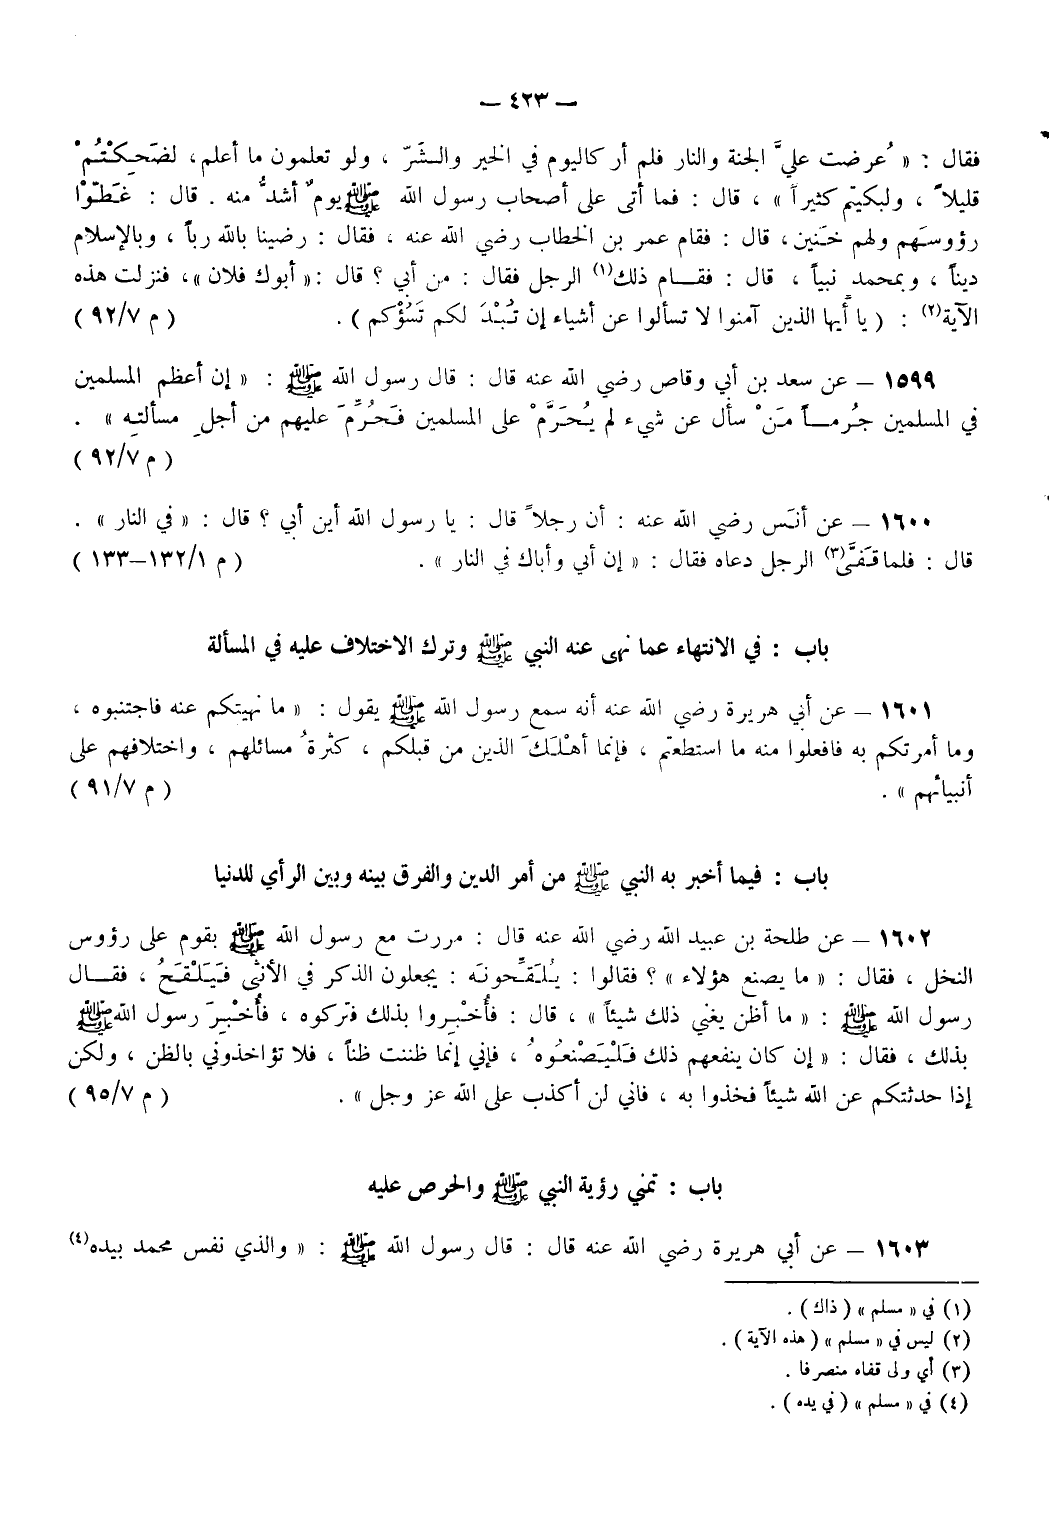 — ٤٢٣ —
فقال : « عُرضت عليَّ الجنة والنار فلم أر كاليوم في الخير والـشَّرّ ، ولو تعلمون ما أعلم، لضَحِكْتُمْ
قليلاً ، ولبكيتم كثيراً » ، قال : فما أتى على أصحاب رسول الله ﷺ يومٌ أشدُّ منه . قال : غَطَّوْا
رؤوسَهم ولهم خَنين، قال : فقام عمر بن الخطاب رضي الله عنه ، فقال : رضينا بالله رباً ، وبالإسلام
ديناً ، وبمحمد نبياً ، قال : فقـــام ذلك(١) الرجل فقال : من أبي ؟ قال :« أبوك فلان »، فنزلت هذه
الآية(٢) : ( يا أيها الذين آمنوا لا تسألوا عن أشياء إن تُبْدَ لكم تَسُؤْكم ) . ( م ٩٢/٧ )
١٥٩٩ – عن سعد بن أبي وقاص رضي الله عنه قال : قال رسول الله ﷺ : « إن أعظم المسلمين
في المسلمين جُرمـــاً مَنْ سأل عن شيء لم يُحَرَّمْ على المسلمين فَحُرِّمَ عليهم من أجلِ مسألتـِه » .
( م ٩٢/٧ )
١٦٠٠ – عن أنَس رضي الله عنه : أن رجلاً قال : يا رسول الله أين أبي ؟ قال : « في النار » .
قال : فلما قَفَّى(٣) الرجل دعاه فقال : « إن أبي وأباك في النار » . ( م ١٣٢/١–١٣٣ )
باب : في الانتهاء عما نهى عنه النبي ﷺ وترك الاختلاف عليه في المسألة
١٦٠١ – عن أبي هريرة رضي الله عنه أنه سمع رسول الله ﷺ يقول : « ما نهيتكم عنه فاجتنبوه ،
وما أمرتكم به فافعلوا منه ما استطعتم ، فإنما أهْلَكَ الذين من قبلكم ، كثرةُ مسائلهم ، واختلافهم على
أنبيائهم » . ( م ٩١/٧ )
باب : فيما أخبر به النبي ﷺ من أمر الدين والفرق بينه وبين الرأي للدنيا
١٦٠٢ – عن طلحة بن عبيد الله رضي الله عنه قال : مررت مع رسول الله ﷺ بقوم على رؤوس
النخل ، فقال : « ما يصنع هؤلاء » ؟ فقالوا : يُلَقِّحونَه : يجعلون الذكر في الأنثى فَيَلْقَحُ ، فقـــال
رسول الله ﷺ : « ما أظن يغني ذلك شيئاً » ، قال : فأُخْبِروا بذلك فتركوه ، فأُخْبِرَ رسول الله ﷺ
بذلك ، فقال : « إن كان ينفعهم ذلك فَلْيَصْنَعُوهُ ، فإني إنما ظننت ظناً ، فلا تؤاخذوني بالظن ، ولكن
إذا حدثتكم عن الله شيئاً فخذوا به ، فاني لن أكذب على الله عز وجل » . ( م ٩٥/٧ )
باب : تمني رؤية النبي ﷺ والحرص عليه
١٦٠٣ – عن أبي هريرة رضي الله عنه قال : قال رسول الله ﷺ : « والذي نفس محمد بيده(٤)
(١) في « مسلم » ( ذاك ) .
(٢) ليس في « مسلم » ( هذه الآية ) .
(٣) أي ولى قفاه منصرفا .
(٤) في « مسلم » ( في يده ) .